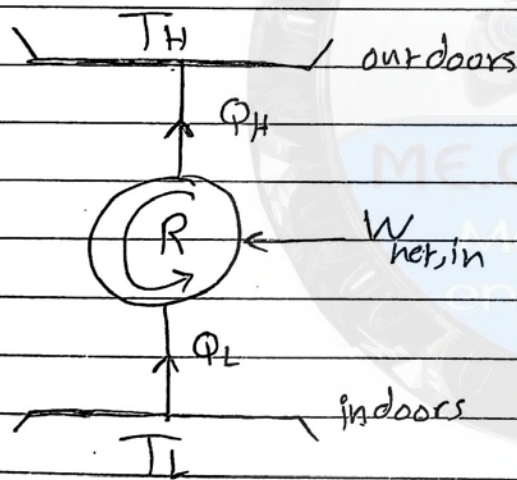 T_H
outdoors
Q_H
R
W_net,in
Q_L
indoors
T_L
ME.
M
en